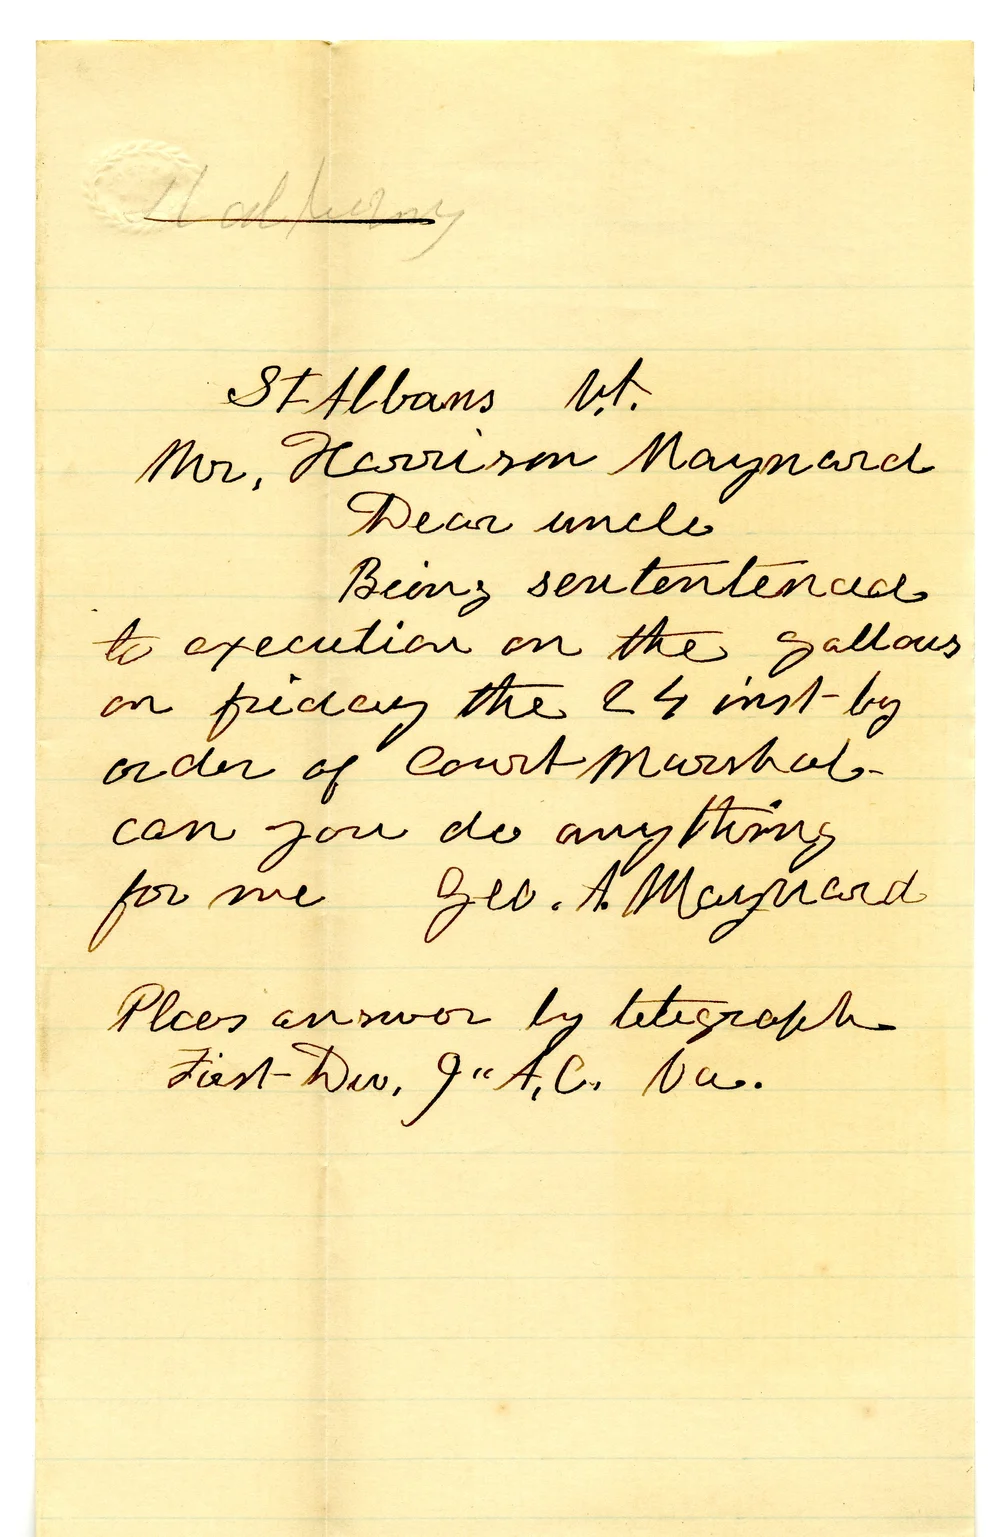 St Albans Vt.
Mr, Harrison Maynard
Dear uncle
Being sententenced
to execution on the gallows
on friday the 24 inst- by
order of Court Marshal-
can you do anything
for me Geo. A. Maynard
Pleas answor by telegraph
First- Div, 9" A,C, Va.